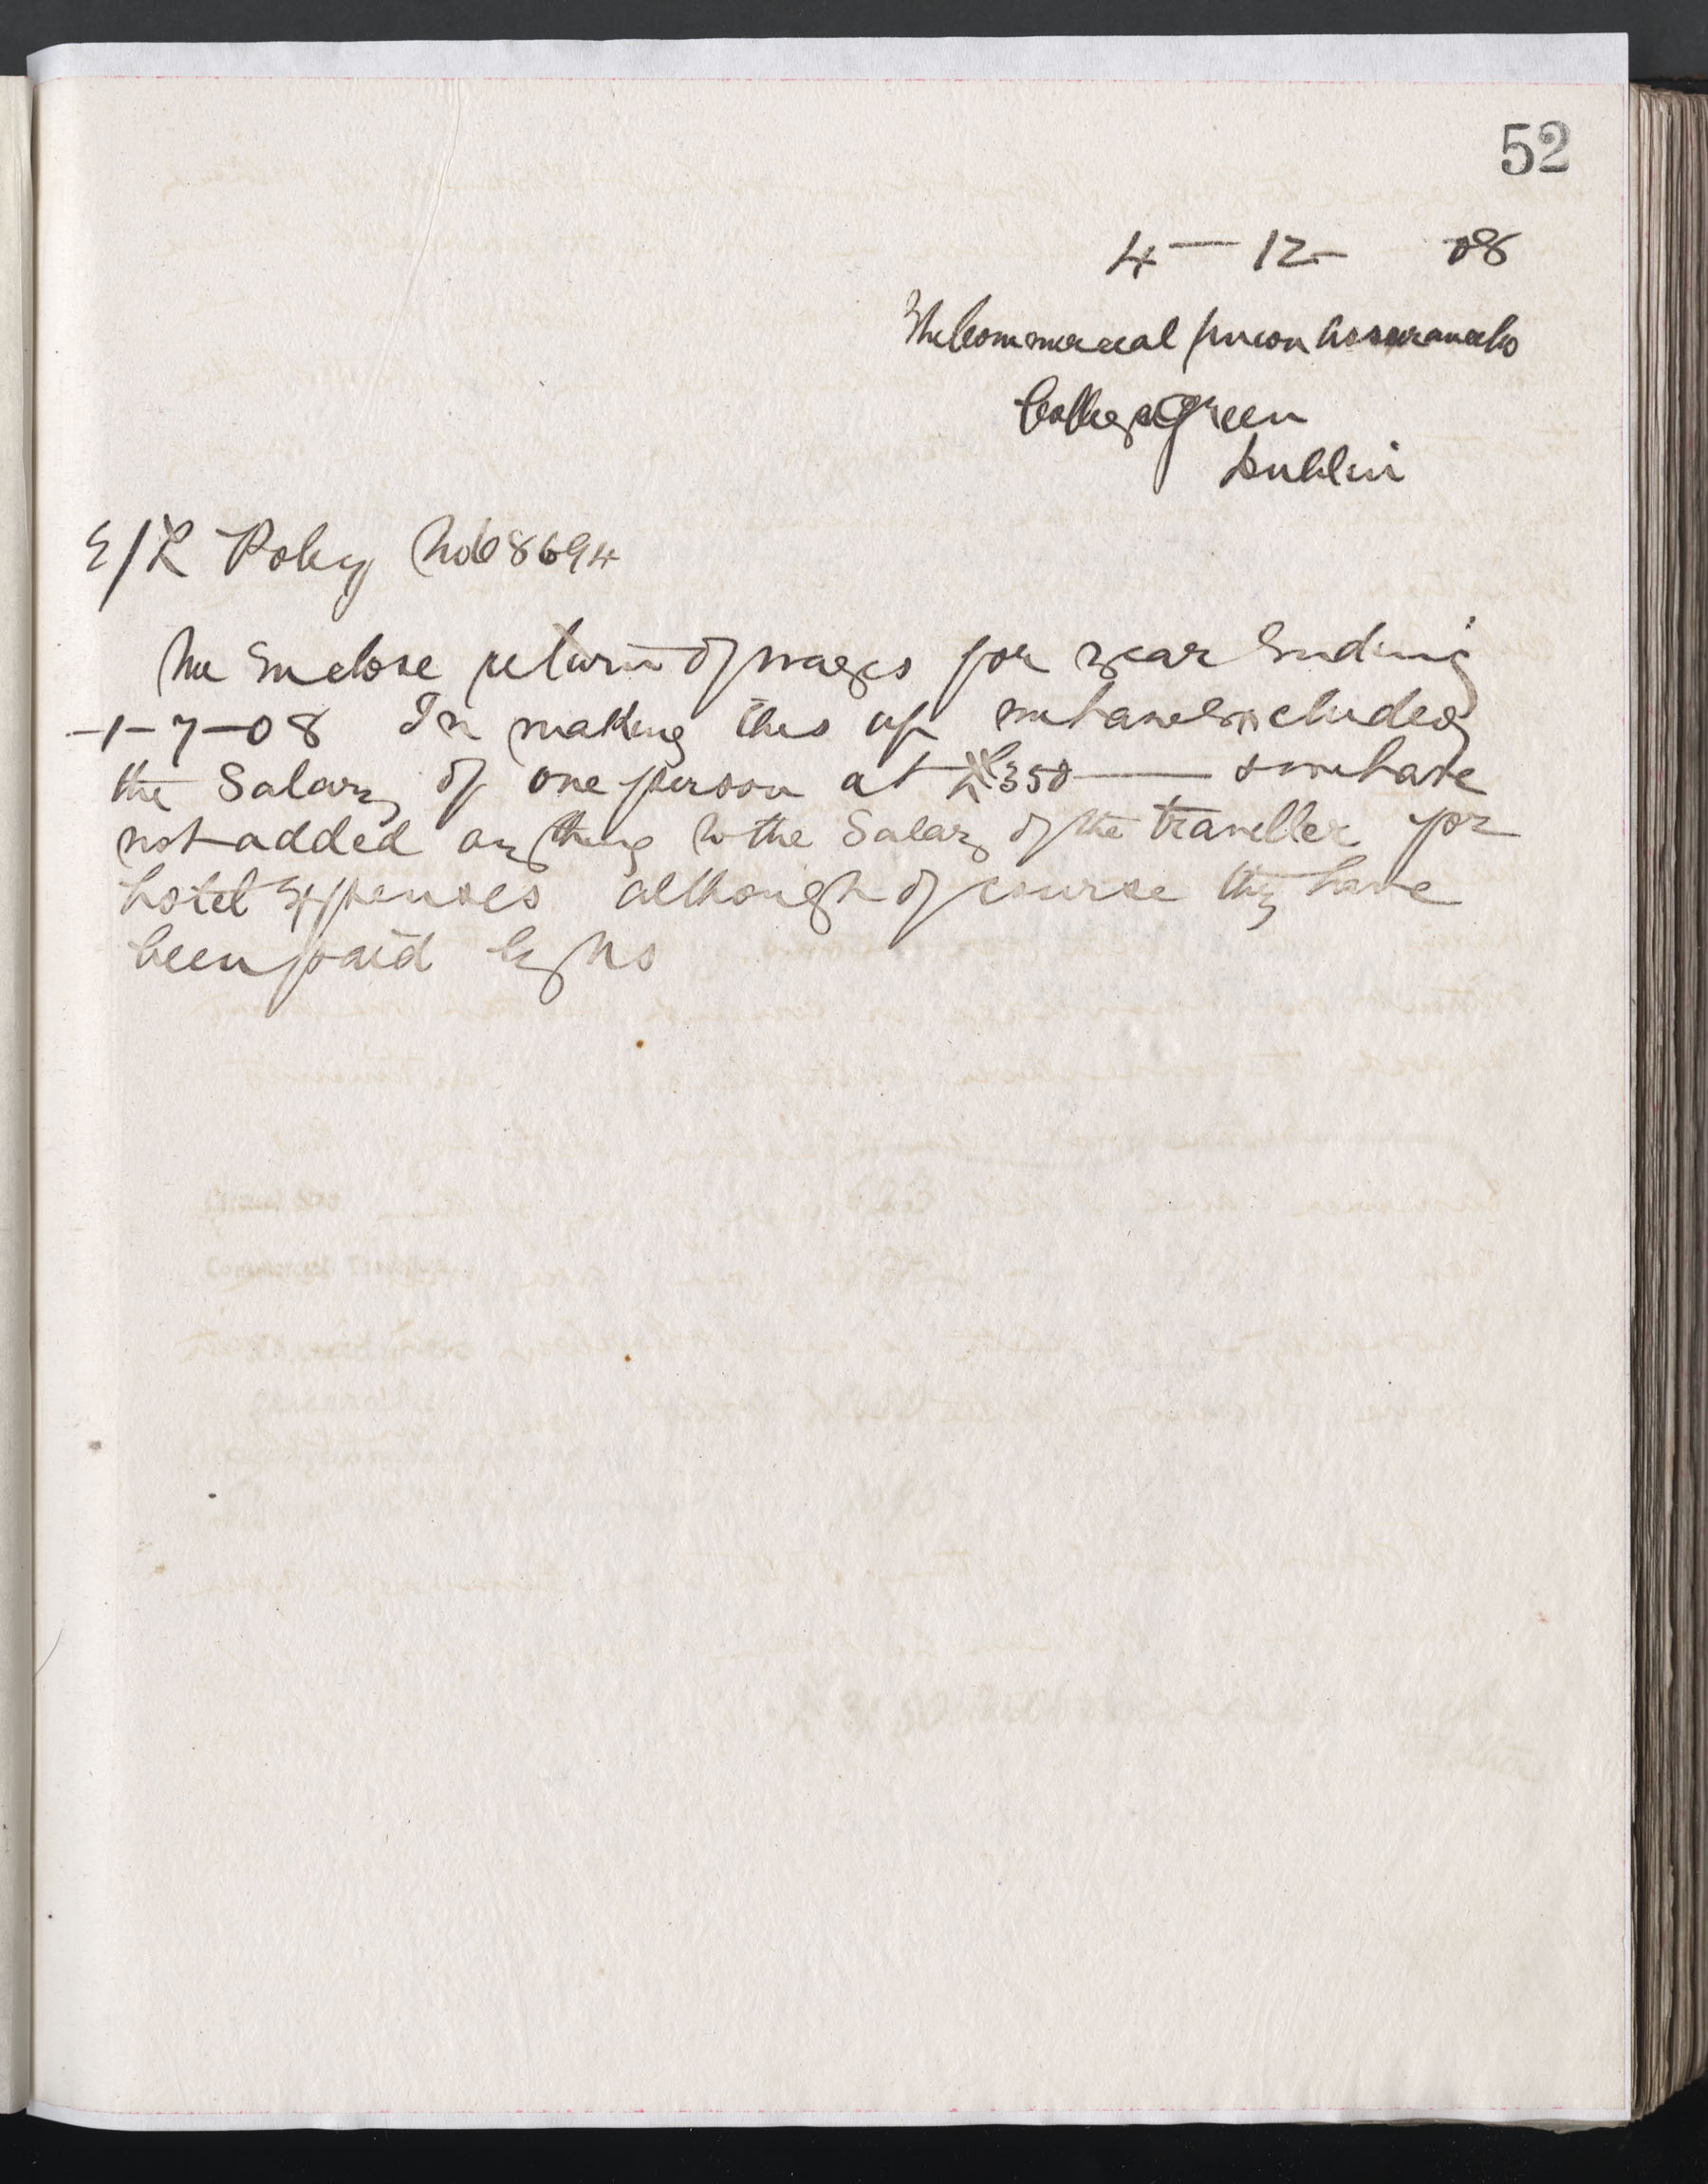 52
4 - 12 - 08
The Commercial Union Assurance Co
College Green
Dublin
E/L Policy No 68694
We Enclose return of wages for year Ending
-1-7-08 In making this up we have Excluded
the Salary of one person at £350 — & we have
not added anything to the Salary of the traveller for
hotel Expenses although of course they have
been paid by us